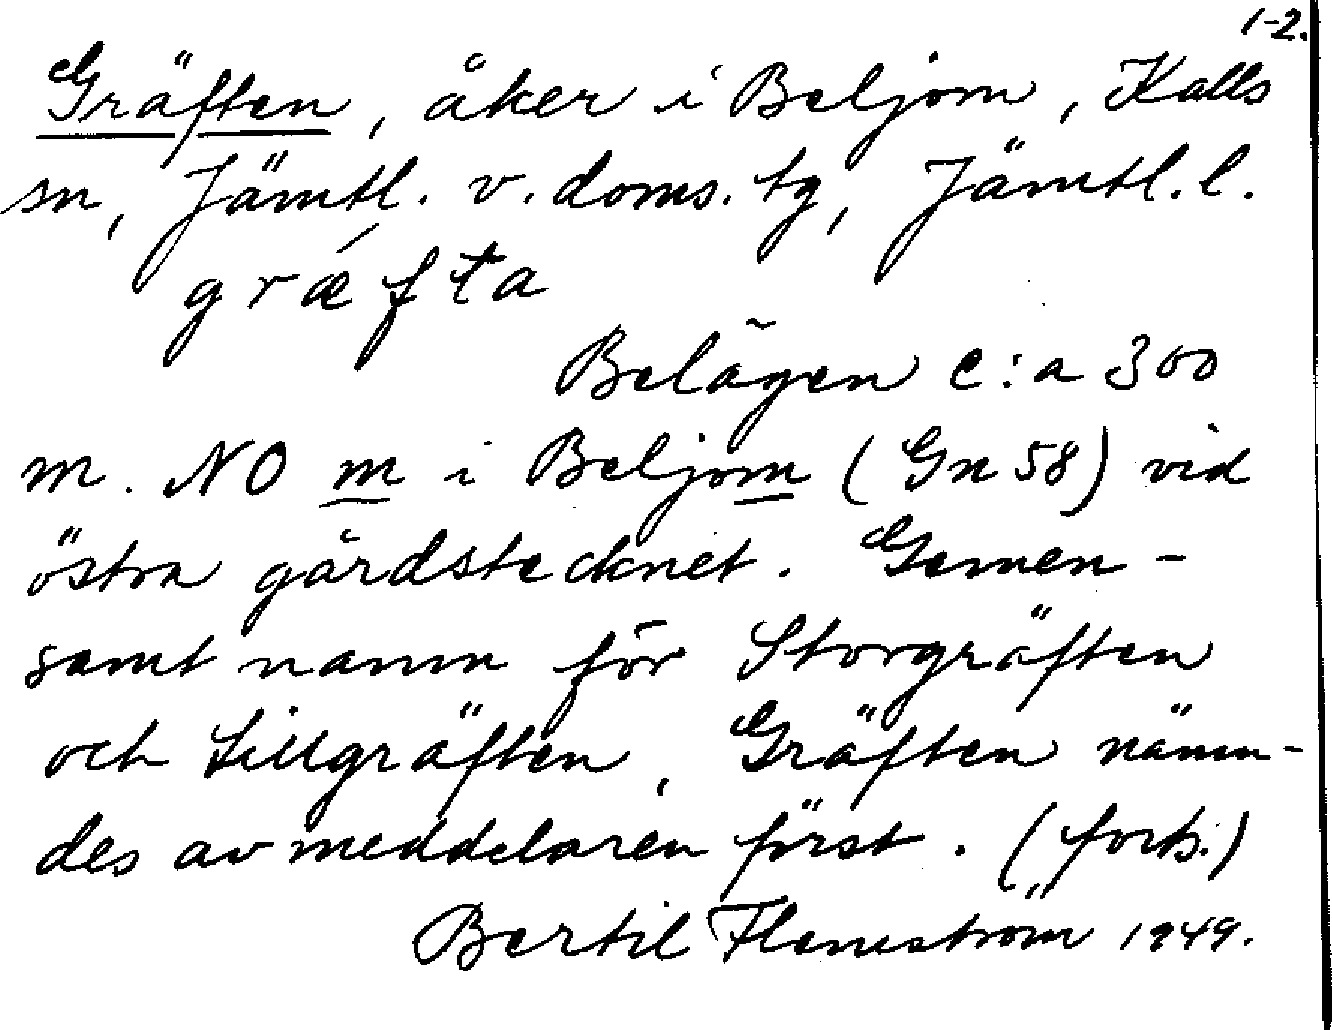 1-2.
Gräften, åker i Beljom, Kalls
sn, Jämtl. v. doms. tg, Jämtl. l.
grǽfta
Belägen c:a 300
m. NO m i Beljom (Gn 58) vid
östra gårdstecknet. Gemen-
samt namn för Storgräften
och Lillgräften, Gräften nämn-
des av meddelaren först. (forts.)
Bertil Flemström 1949.